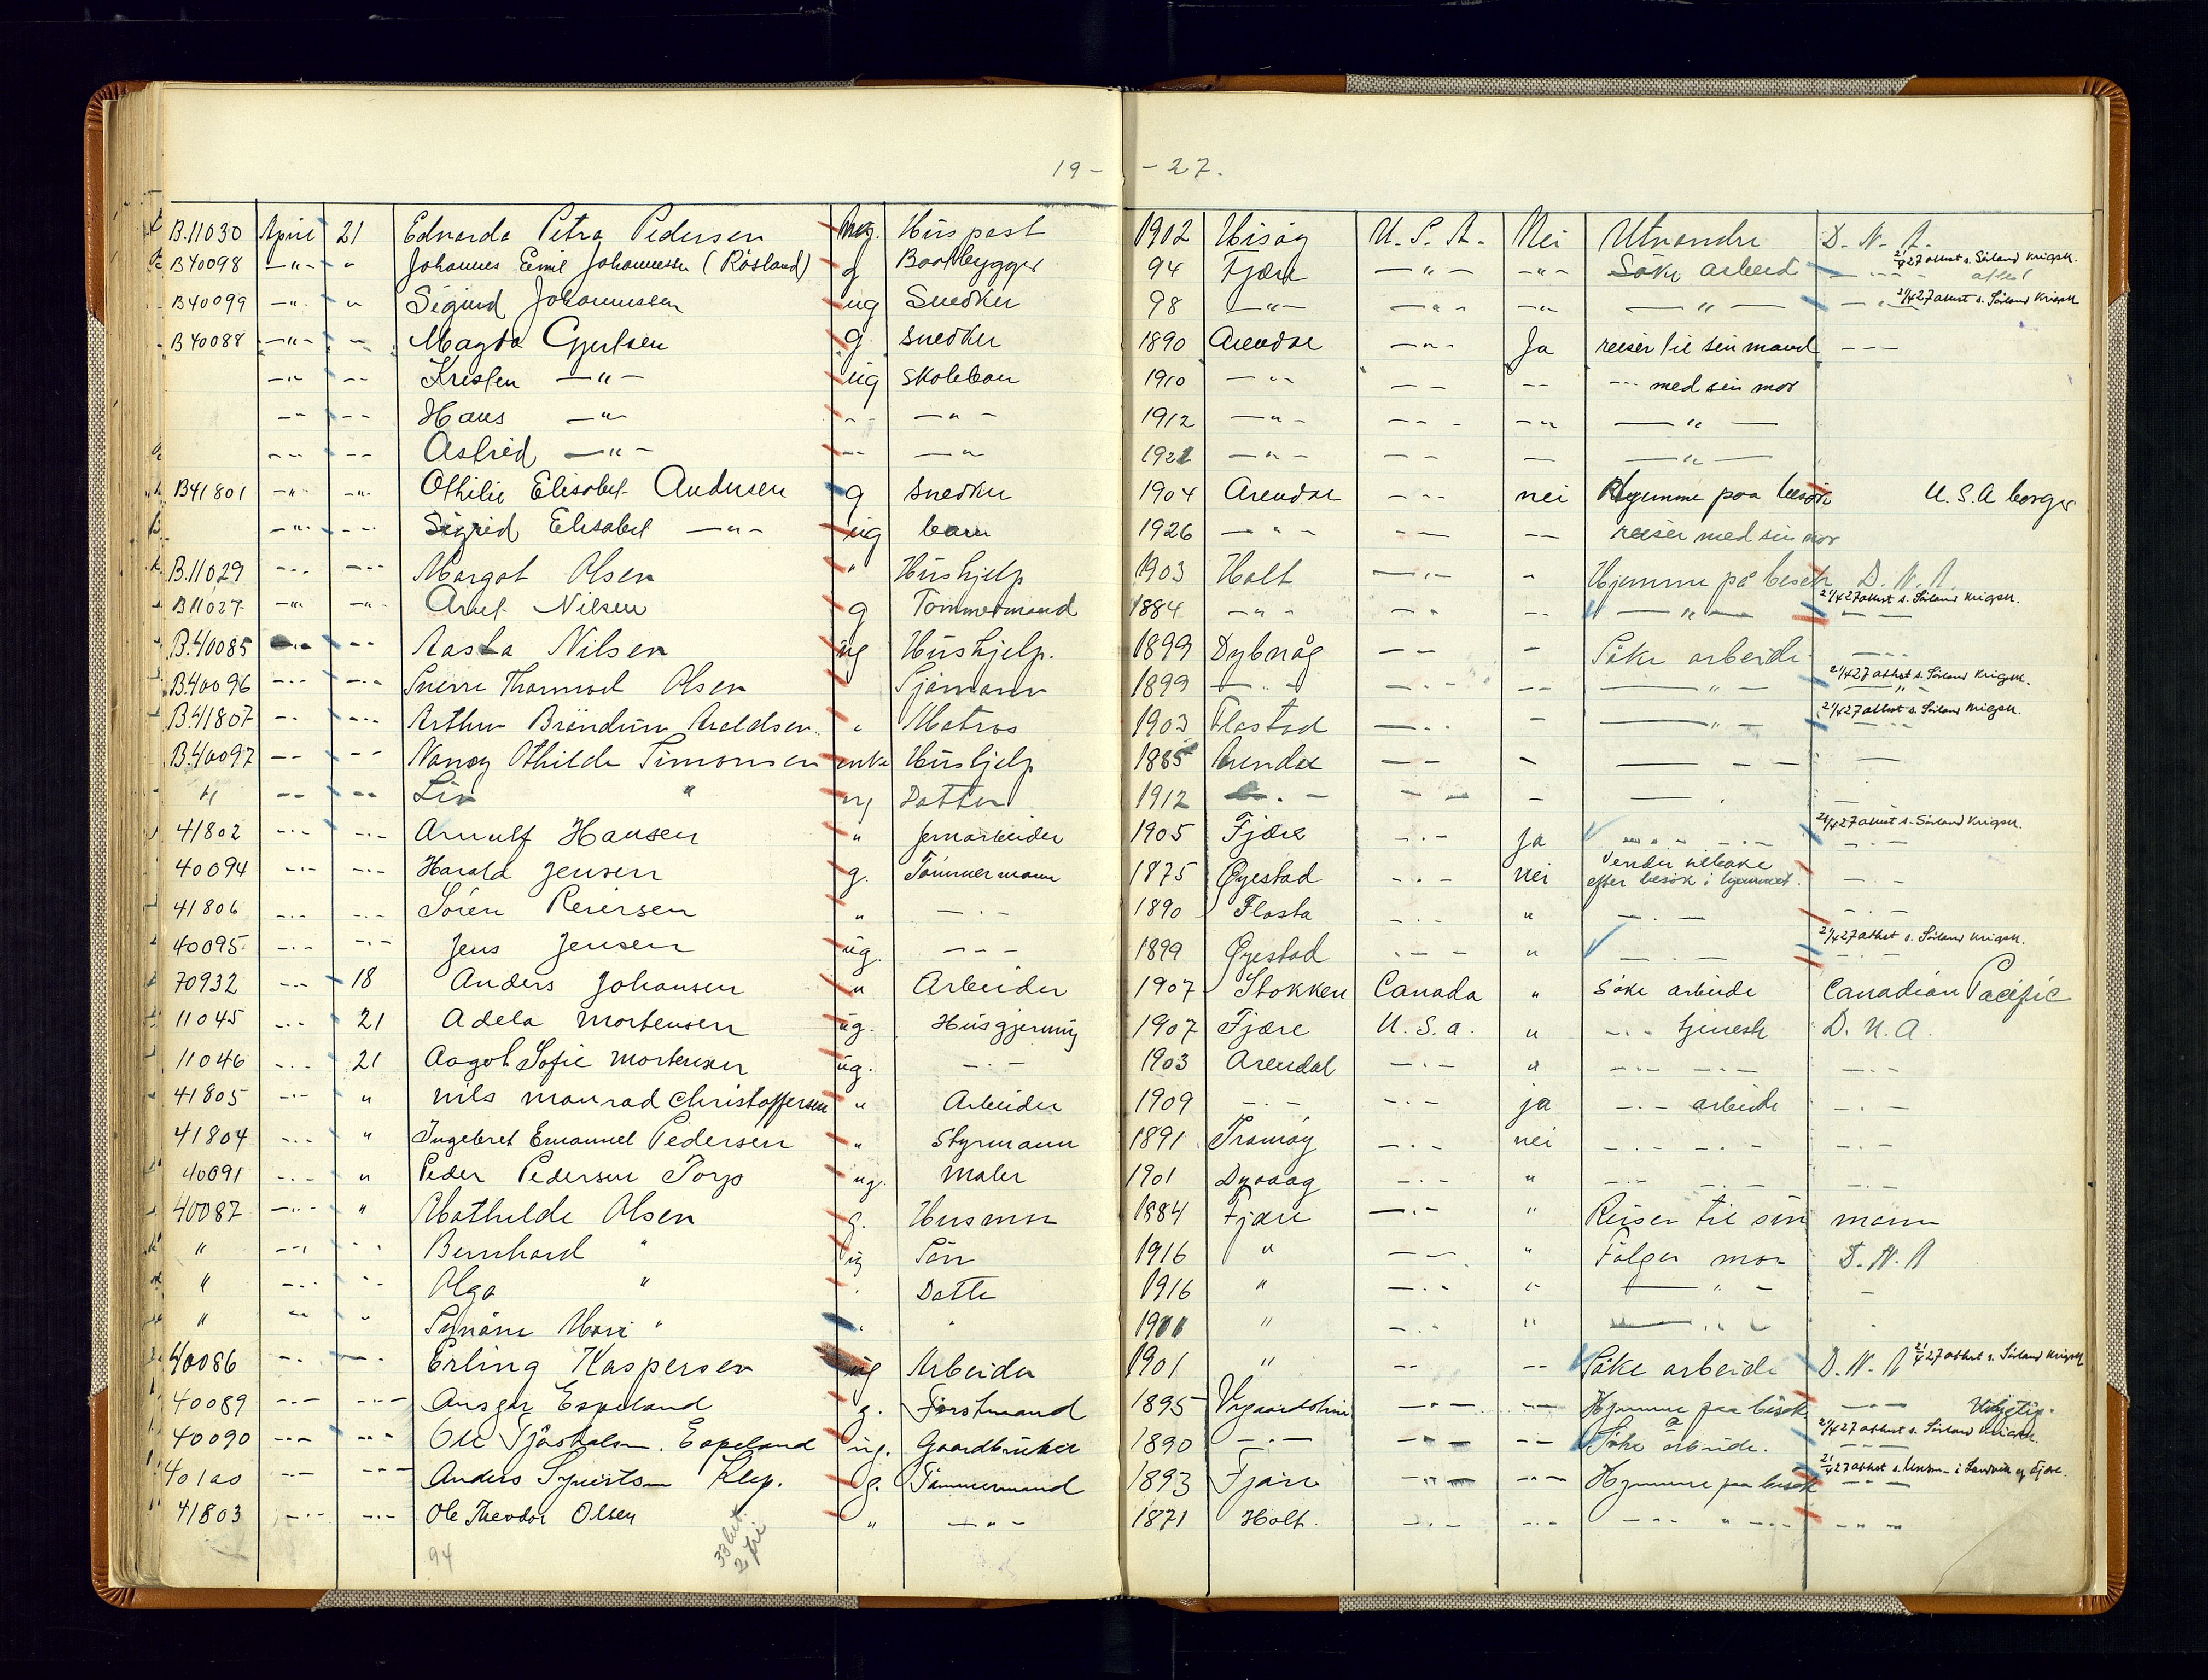 19- -27.
B.11030 April 21 Edvarda Petra Pedersen ug. Huspost 1902 Hisøy U.S.A. Nei Utvandre D.N.A.
B40098 -"- " Johannes Emil Johannessen (Røsland) g Baatbygger 94 Fjære -"- -"- Søke arbeid 21/4 27 attest s. Sörland Krigsk.
B40099 -"- " Sigurd Johannessen ug Snedker 98 -"- -"- -"- -"- 21/4 27 attest s. Sörland Krigsk.
B40088 -"- " Magda Gjertsen g snedker 1890 Arendal -"- Ja reiser til sin mand ---
-"- -- Kristen -"- ug skolebarn 1910 -"- -- -- --- med sin mor
-- -- Hans -"- -- -"- 1912 -"- --- -"- -"-
--- -- Astrid -"- -- -"- 1921 -"- -- - -"-
B41801 -"- -"- Othilie Elisabet Andersen g snedker 1904 Arendal --- nei Hjemme paa besøk U.S.A borger
-"- --- Sigrid Elisabet -"- ug barn 1926 -"- -- -- reiser med sin mor
B.11029 --- --- Margot Olsen " Hushjelp 1903 Holt -"- " Hjemme på besøk D.N.A.
B11027 -"- -"- Arnt Nilsen g Tømmermand 1884 -"- -"- -- -"- 21/4 27 attest s. Sörland Krigsk.
B.40085 -"- -- Aasta Nilsen ug Hushjelp. 1899 Dybvåg -- - Søke arbeide ---
B40096 --- --- Sverre Thormod Olsen Sjømann 1899 -"- --- -- -"- 21/4 27 attest s. Sörland Krigsk.
B.41807 -- --- Arthur Bröndum Araldsen " Matros 1903 Flostad --- - -"- 21/4 27 attest s. Sörland Krigsk.
B.40097 -- --- Nancy Othilde Simonsen enke Hushjelp 1885 Arendal -- - --- -
" -- -- Liv " ug Datter 1912 --- -- - -
41802 --- --- Arnulf Hansen " Jernarbeider 1905 Fjære --- Ja --- 21/4 27 attest s. Sörland Krigsk.
40094 --- --- Harald Jensen g. Tømmermann 1875 Øyestad --- nei Vender tilbake efter besøk i hjemmet. ---
41806 --- --- Søren Reiersen " --- 1890 Flosta --- " --- ---
40095 --- --- Jens Jensen ug. --- 1899 Øyestad --- " --- 21/4 27 attest s. Sörland Krigsk.
70932 --- 18 Anders Johansen " Arbeider 1907 Stokken Canada " søke arbeide Canadian Pacific
11045 --- 21 Adela Mortensen ug. Husgjerning 1907 Fjære U.S.a. " --- tjeneste D.N.A.
11046 --- 21 Aagot Sofie Mortensen ug. --- 1903 Arendal --- " --- --- ---
41805 --- " Nils Monrad Christoffersen " Arbeider 1909 --- --- ja --- arbeide ---
41804 --- " Ingebret Emanuel Pedersen " Styrmann 1891 Tromøy --- nei --- --- ---
40091 --- " Peder Pedersen Torp ug. Maler 1901 Dyvaag --- " --- --- ---
40087 --- " Mathilde Olsen g. Husmor 1884 Fjære --- " Reiser til sin mann
" --- -- Bernhard " ug Søn 1916 " -- " Følger mor D.N.A
" --- -- Olga " " Datte 1916 " --- " -"- -
" -- " " " " --- " ---
40086 --- --- Erling Kaspersen ug Arbeider 1901 " -- -- Søke arbeide D.N.A 21/4 27 attest s. Sörland Krigsk
40089 --- --- Ansgar Espeland g. Forstmand 1895 --- --- Hjemme paa besøk ---
40090 --- --- Ole Espeland ug. Gaardbruker 1890 --- --- -- Søke arbeide. 21/4 27 attest s. Sörland Krigsk.
40100 -- --- Anders Syvertsen Klep. g. Tømmermand 1893 Fjære --- --- Hjemme paa besøk 21/4 27 attest s. lensm. i Landvik og Fjære.
41803 --- --- Ole Theodor Olsen " --- 1871 Holt. --- --- --- " --- ---
94
33 bet.
2 fri